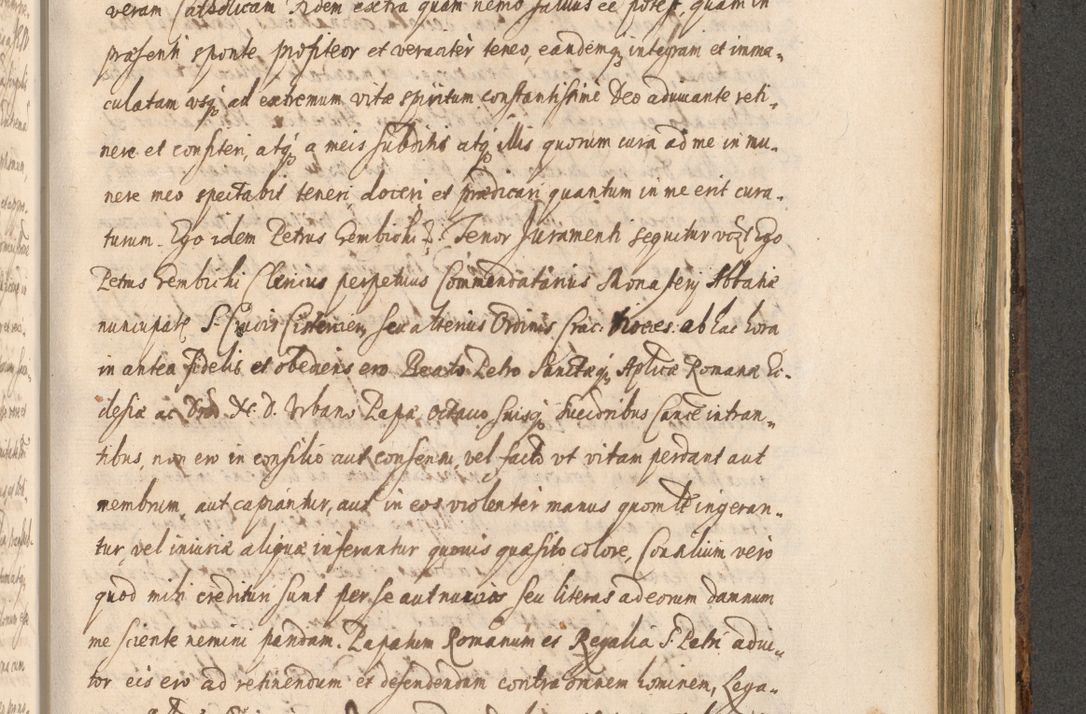 veram Catholicam fidem extra quam nemo saluus ee potest, quam in
præsenti sponte profiteor et veraciter teneo, eandemq integram et imma-
culatam vsq ad extremum vitæ spiritum constantissime Deo adiuuante reti-
nere et confiteri, atq a meis subditis atq illis quorum cura ad me in mu-
nere meo spectabit teneri, doceri et prædicari quantum in me erit cura-
turum. Ego idem Petrus Gembicki Tenor Juramenti sequitur Ego
Petrus Gembicki Clericus perpetuus Commendatarius Monastery Abbatiæ
nuncupatę S. Crucis Cistercien, seu alterius Ordinis Crac. Dioces. ab hac hora
in antea fidelis et obediens ero Beato Petro Sanctæq Aplicæ Romanæ Ec-
clesiæ ac D. N. D. Vrbano Papæ octauo suisq succoribus Cance intran-
tibus, non ero in consilio aut consensu, vel facto vt vitam perdant aut
membrum, aut capiantur, aut in eos violenter manus quomlt ingeran-
tur, vel iniuriæ aliquæ inferantur quouis quæsito colore, Consilium vero
quod mihi credituri sunt per se aut nuncios seu literas ad eorum damnum
me sciente nemini pandam. Papatum Romanum et Regalia S. Petri adiu-
tor eis ero ad retinendum et defendendum contra omnem hominem, Lega-